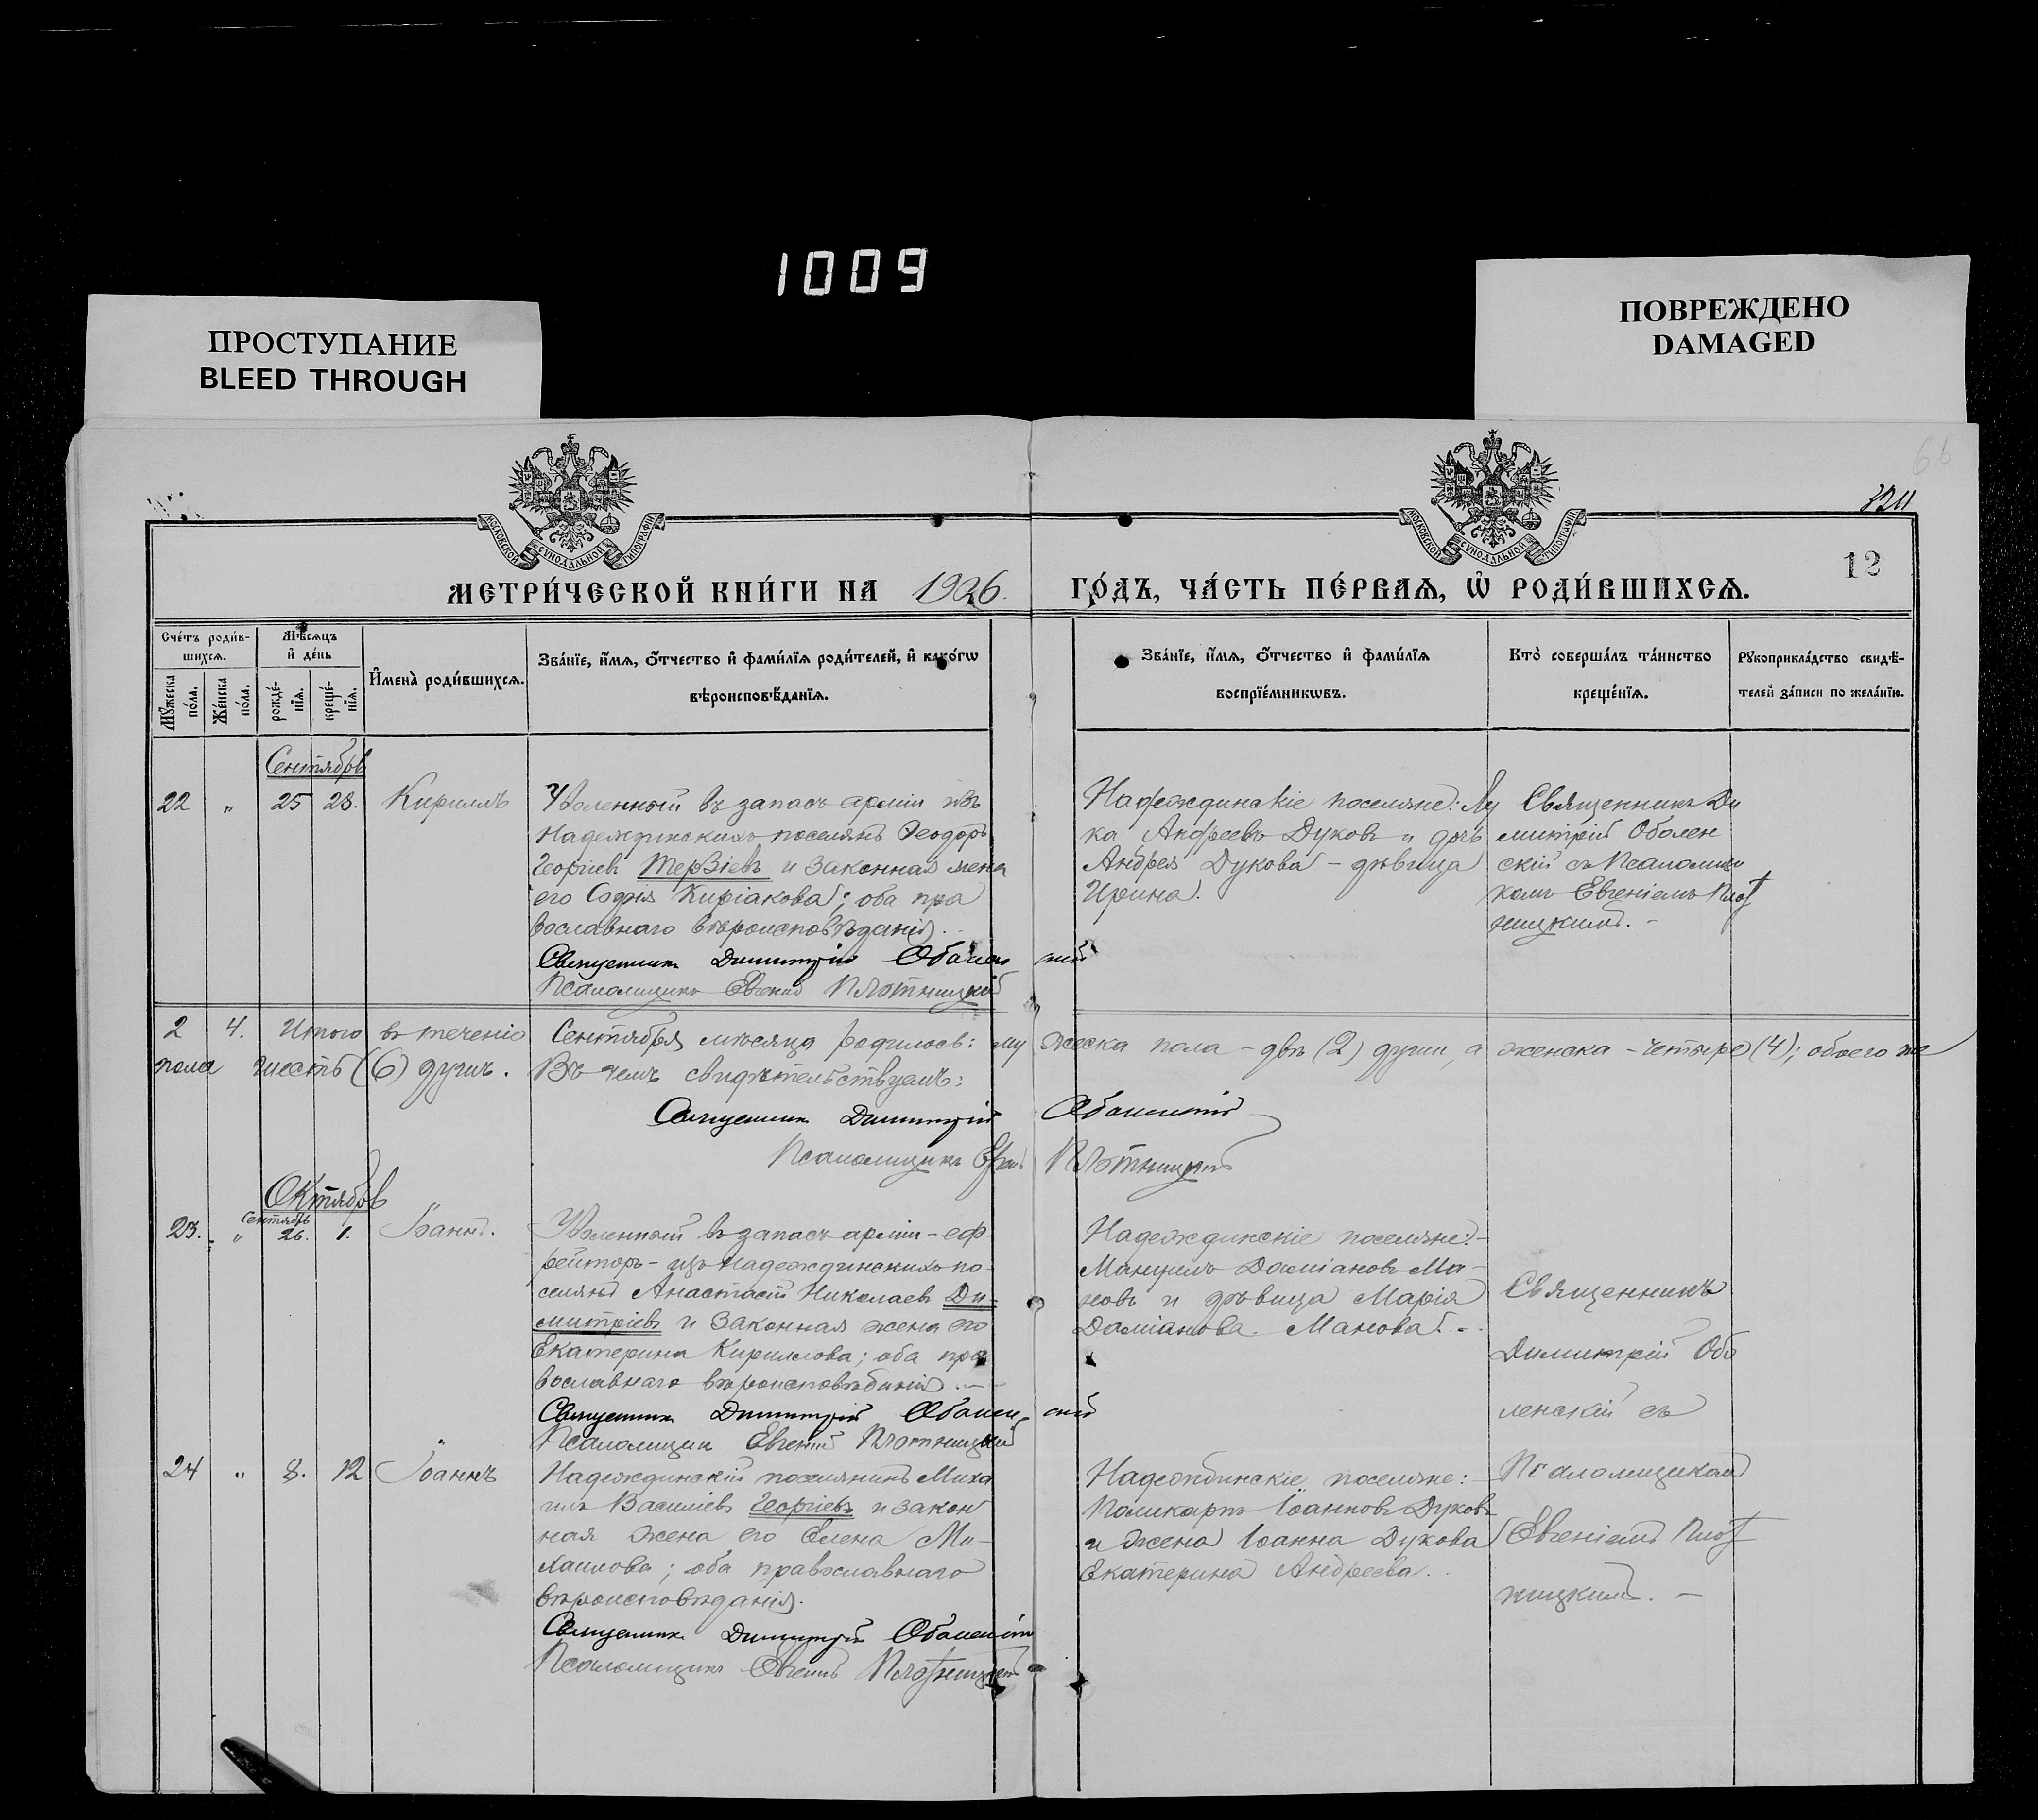 1009
ПРОСТУПАНИЕ
BLEED THROUGH
ПОВРЕЖДЕНО
DAMAGED
66
324
12
МОСКОВСКОЙ СѴНОДАЛЬНОЙ ТИПОГРАФІИ
МОСКОВСКОЙ СѴНОДАЛЬНОЙ ТИПОГРАФІИ
МЕТРИ́ЧЕСКОЙ КНИ́ГИ НА 1906. ГО́ДЪ, ЧА́СТЬ ПЕ́РВАѦ, Ѿ РОДИ́ВШИХСѦ.
Сче́тъ роди́в-
шихсѧ.
Мꙋ́жеска по́ла.
Же́нска по́ла.
Мѣ́сѧцъ
и҆ де́нь
рожде́-нїѧ.
креще́-нїѧ.
И҆мена̀ роди́вшихсѧ.
Зва́нїе, и҆́мѧ, ѻ҆́тчество и҆ фами́лїѧ роди́телей, и҆ како́гѡ
вѣроисповѣ́данїѧ.
Зва́нїе, и҆́мѧ, ѻ҆́тчество и҆ фами́лїѧ
воспрїе́мникѡвъ.
Кто̀ соверша́лъ та́инство
креще́нїѧ.
Рꙋкоприкла́дство свидѣ́-
телей за́писи по жела́нїю.
Сентябрь
22 " 25 28. Кириллъ
Уволенный въ запасъ арміи изъ
Надеждинскихъ поселянъ Ѳеодоръ
Георгіевъ Терзіевъ и законная жена
его Софія Киріакова; оба пра
вославнаго вѣроисповѣданія.
Священникъ Димитрій Оболенскій
Псаломщикъ Евгеній Плотницкій
Надеждинскіе поселяне: Лу
ка Андреевъ Дуковъ и дочь
Андрея Дукова - дѣвица
Ирина.
Священникъ Ди
митрій Оболен
скій съ Псаломщи
комъ Евгеніемъ Плот
ницкимъ. -
2 4. Итого въ теченіе Сентября мѣсяца родилось: мужеска пола - двѣ (2) души, а женска - четыре (4); обоего же
пола шесть (6) душъ. Въ чемъ свидѣтельствуемъ:
Священникъ Димитрій Оболенскій
Псаломщикъ Евгеній Плотницкій
Октябрь
23. " Сентябрь 26. 1. Іоаннъ.
Уволенный въ запасъ арміи - еф
рейторъ - изъ Надеждинскихъ по
селянъ Анастасій Николаевъ Ди-
митріевъ и законная жена его
Екатерина Кириллова; оба пра
вославнаго вѣроисповѣданія. -
Священникъ Димитрій Оболенскій
Псаломщикъ Евгеній Плотницкій
Надеждинскіе поселяне: -
Мануилъ Даміановъ Ма-
новъ и дѣвица Марія
Даміанова Манова. -
Священникъ
Димитрій Обо
ленскій съ
Псаломщикомъ
Евгеніемъ Плот
ницкимъ. -
24 " 8. 12 Іоаннъ
Надеждинскій поселянинъ Миха
илъ Василіевъ Георгіевъ и закон
ная жена его Елена Ми-
хаилова; оба православнаго
вѣроисповѣданія.
Священникъ Димитрій Оболенскій
Псаломщикъ Евгеній Плотницкій
Надеждинскіе поселяне:
Поликарпъ Іоанновъ Дуковъ
и жена Іоанна Дукова
Екатерина Андреева.